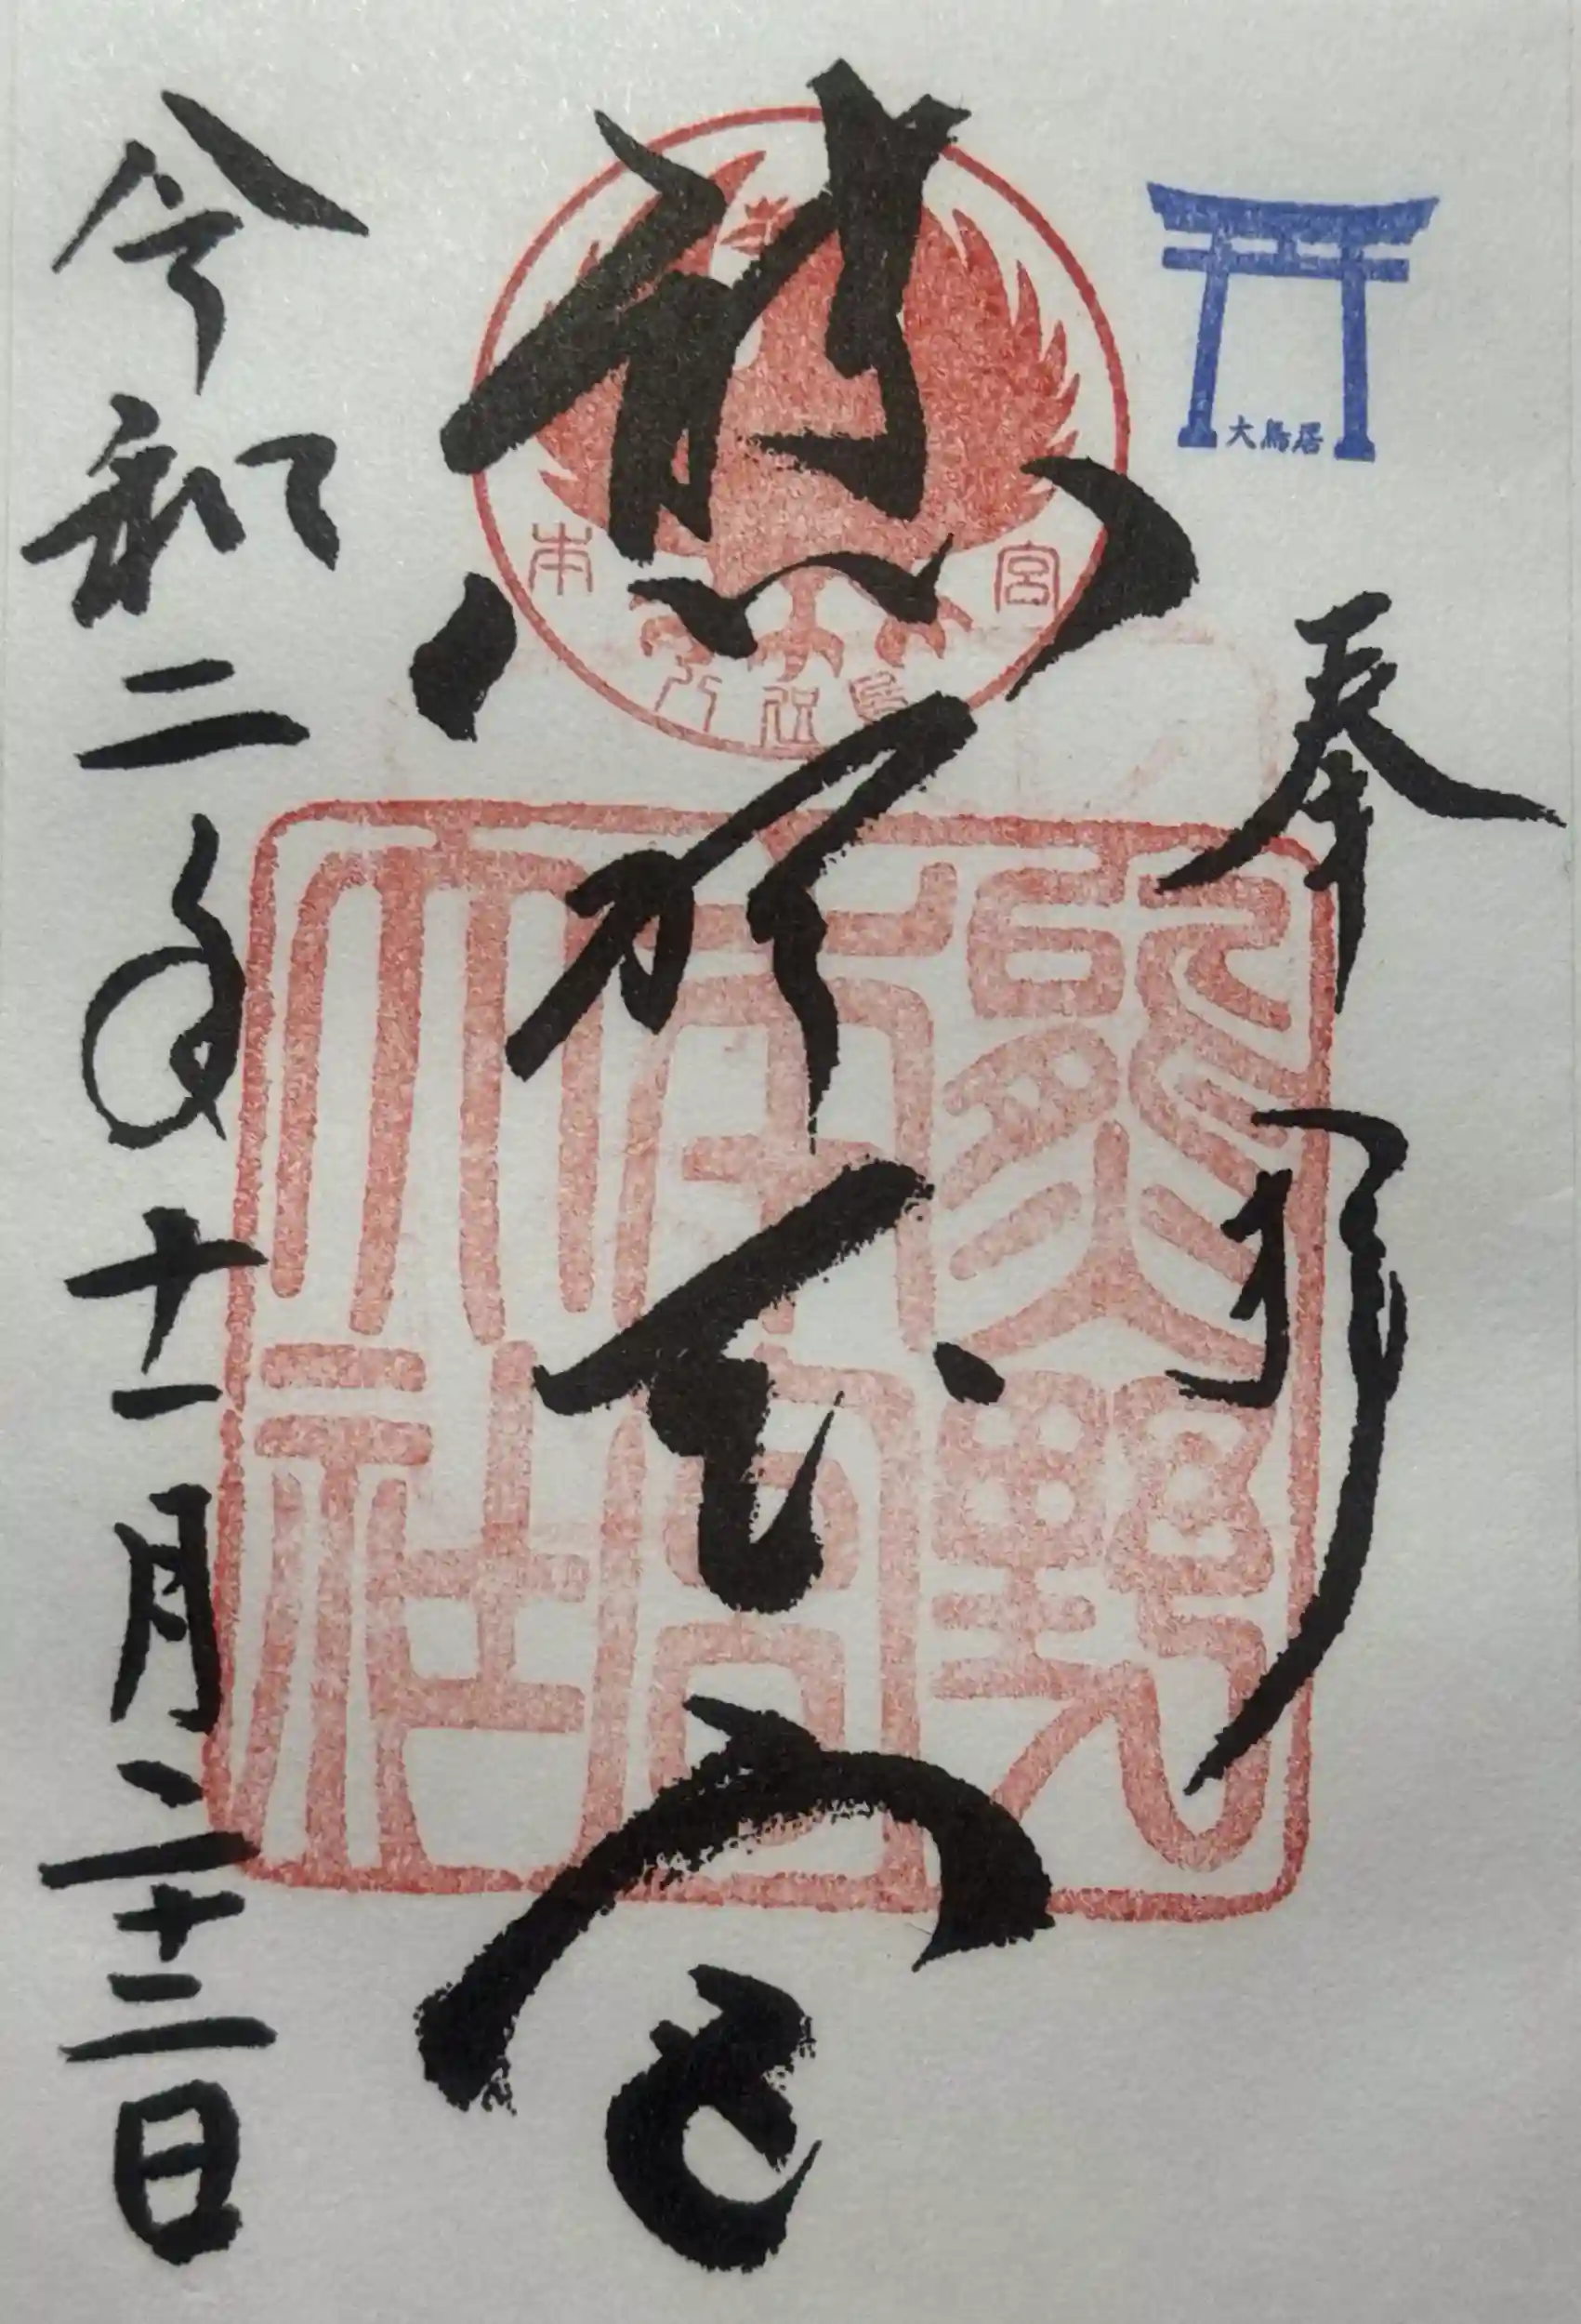 大鳥居
奉拝
熊野本宮
令和二年十一月二十二日
本宮
八咫烏
熊野本宮大社